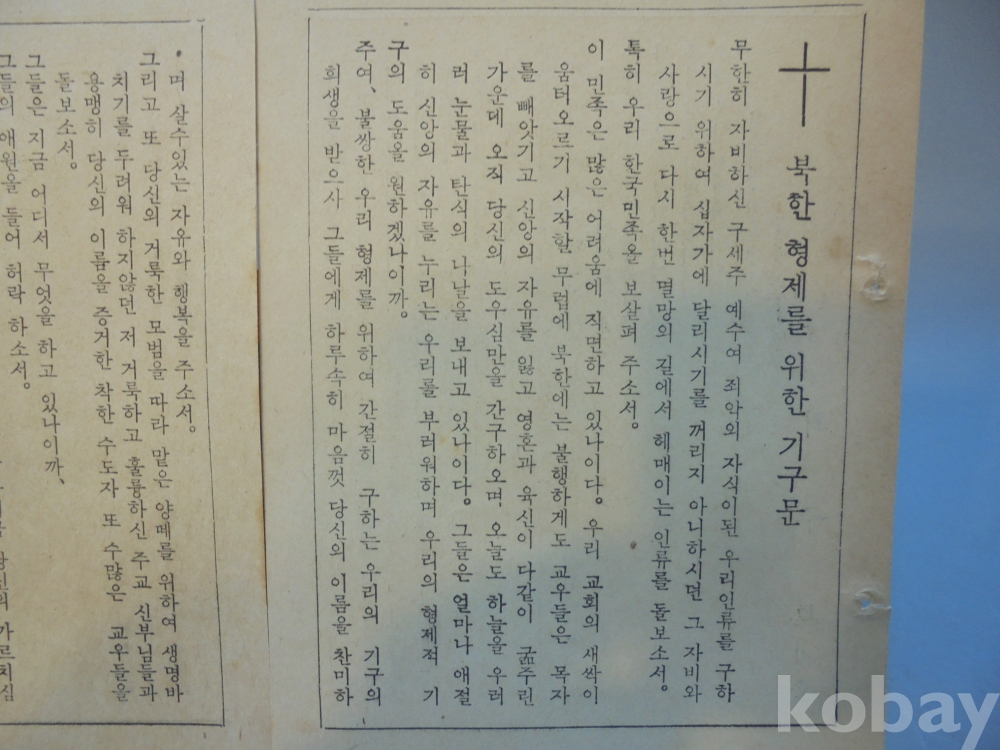 북한 형제를 위한 기구문
무한히 자비하신 구세주 예수여 죄악의 자식이된 우리인류를 구하
시기 위하여 십자가에 달리시기를 꺼리지 아니하시면 그 자비와
사랑으로 다시 한번 멸망의 길에서 헤매이는 인류를 돌보소서。
특히 우리 한국민족올 보살펴 주소서。
이 민족은 많은 어려움에 직면하고 있나이다。 우리 교회의 새싹이
움터오르기 시작할 무렵에 북한에는 불행하게도 교우들은 목자
를 빼앗기고 신앙의 자유를 잃고 영혼과 육신이 다같이 굶주린
가운데 오직 당신의 도우심만을 간구하오며、오늘도 하늘을 우러
러 눈물과 탄식의 나날을 보내고 있나이다。 그들은 얼마나 애절
히 신앙의 자유를 누리는 우리를 부러워하며 우리의 형제적 기
구의 도움올 원하겠나이까。
주여、불쌍한 우리 형제를 위하여 간절히 구하는 우리의 기구의
희생을 받으사 그들에게 하루속히 마음껏 당신의 이름을 찬미하
며 살수있는 자유와 행복을 주소서。
그리고 또 당신의 거룩한 모범을 따라 맡은 양떼를 위하여 생명바
치기를 두려워 하지않던 저 거룩하고 훌륭하신 주교 신부님들과
용맹히 당신의 이름을 증거한 착한 수도자 또 수많은 교우들을
돌보소서。
그들은 지금 어디서 무엇을 하고 있나이까、
그들의 애원을 들어 허락 하소서。
kobay